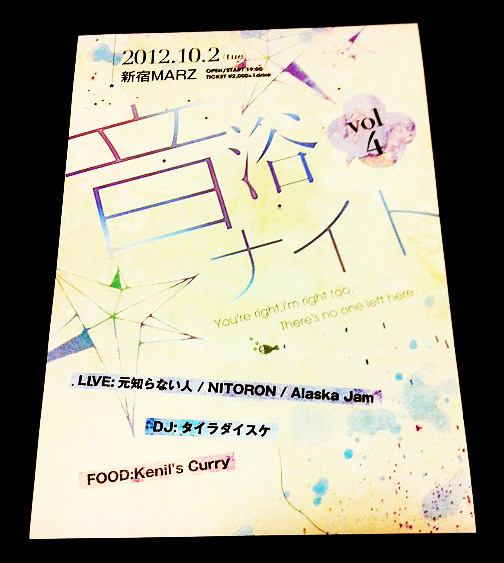 2012.10.2/Tue
新宿MARZ
OPEN/START 19:00
TICKET ¥2,000+1drink
音浴
ナイト
vol
4
You're right,I'm right too.
There's no one left here.
LIVE: 元知らない人 / NITORON / Alaska Jam
DJ: タイラダイスケ
FOOD:Kenil's Curry